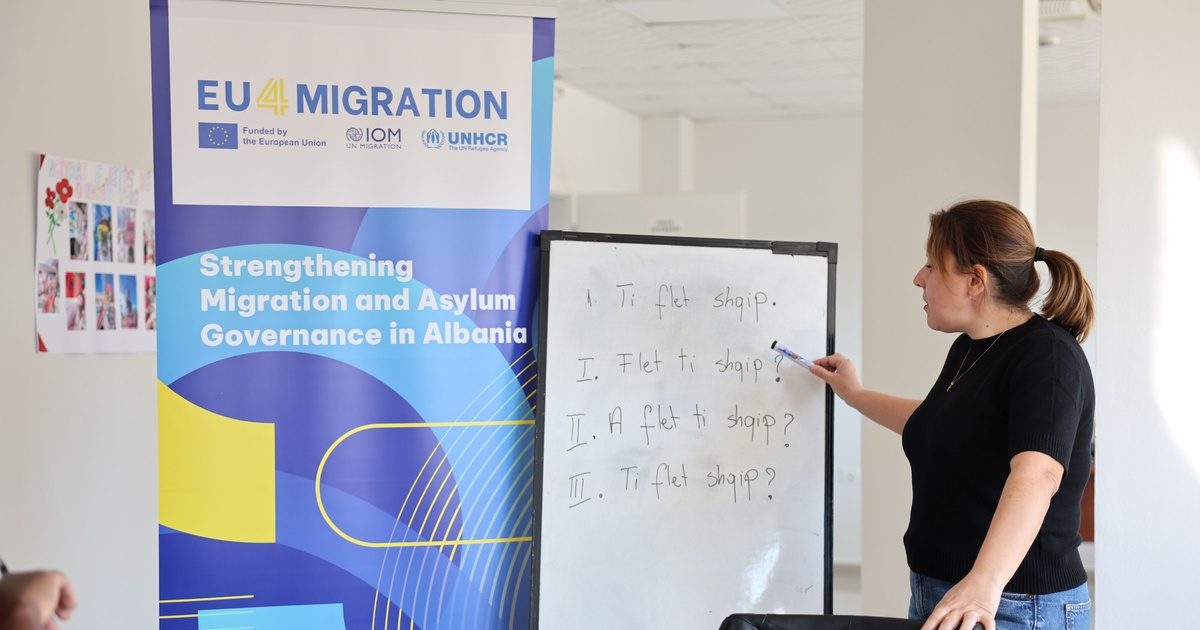 EU4MIGRATION
Funded by
the European Union
IOM
UN MIGRATION
UNHCR
The UN Refugee Agency
Strengthening
Migration and Asylum
Governance in Albania
1. Ti flet shqip.
I. Flet ti shqip?
II. A flet ti shqip?
III. Ti flet shqip?